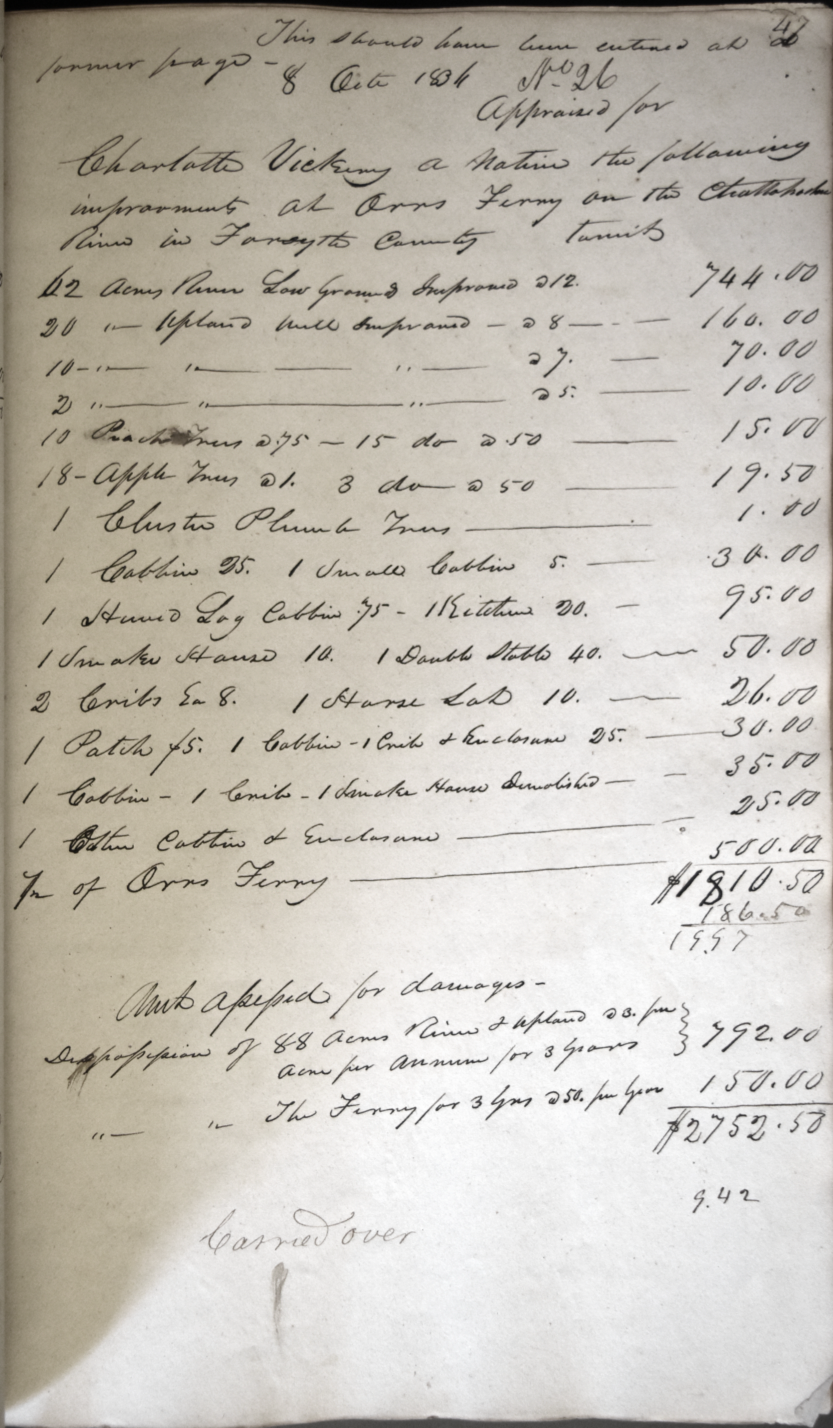 47
This should have been entered at
former page -
8 Octr 1836 No 26
Appraised for
Charlotte Vickery a Native the following
improvments at Orrs Ferry on the Chattahochee
River in Forsyth County
62 Acres River Low Ground Improved @ 12. 744.00
20 "— Upland well Improved — @ 8 —·— 160.00
10 -"— "— — — " — @ 7. — 70.00
2 "— "— — " — @ 5. — 10.00
10 Peach Trees @ .75 — 15 do @ .50 — 15.00
18 - Apple Trees @ 1. 3 do — @ 50 — 19.50
1 Cluster Plumb Trees — 1.00
1 Cabbin 25. 1 Small Cabbin 5. — 30.00
1 Hewed Log Cabbin 75 - 1 Kitchen 20. — 95.00
1 Smoke House 10. 1 Double Stable 40. — 50.00
2 Cribs Ea 8. 1 Horse Lot 10. — 26.00
1 Patch $5. 1 Cabbin - 1 Crib & Enclosure 25. — 30.00
1 Cabbin - 1 Crib - 1 Smoke House Demolished — 35.00
1 Other Cabbin & Enclosure — 25.00
1/2 of Orrs Ferry — 500.00
$1810.50
186.50
1997
Amt assessed for damages -
Dispossession of 88 Acres River & Upland @ 3. per
Acre per Annum for 3 Years } 792.00
"— "— The Ferry for 3 Yrs @ 50. per Year 150.00
$2752.50
942
Carried over